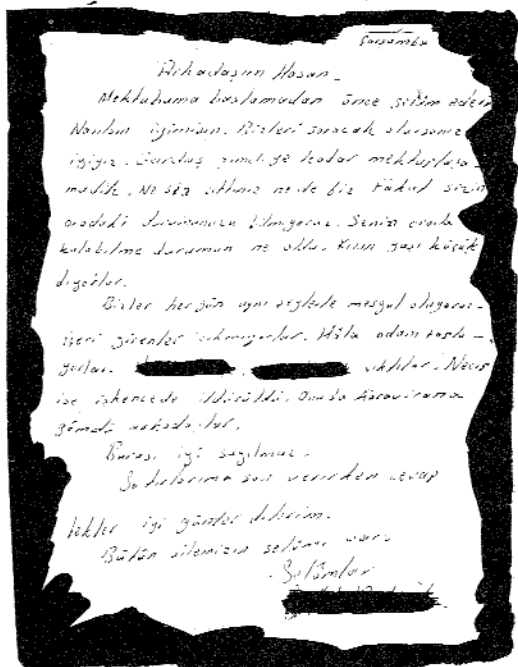 Çarşamba
Arkadaşım Hasan -
Mektubuma başlamadan önce selâm eder
Nasılsın iyimisin. Bizleri soracak olursanız
iyiyiz. şimdiye kadar mektuplaşa-
madık. Ne siz attınız ne de biz. Fakat sizin
oradaki durumunuzu bilmiyoruz. Senin orada
kalabilme durumun ne oldu. yaşı küçük
diyorlar.
Bizler hergün aynı şeylerle meşgul oluyoruz.
İçeri girenler çıkmıyorlar. Hâla adam topla-
yorlar. çıktılar.
ise işkencede öldürüldü. Onuda
gömdü arkadaşlar.
Burası iyi sayılmaz.
Satırlarıma son verirken cevap
bekler iyi günler dilerim.
Bütün ailemizin selâmı var.
Selâmlar